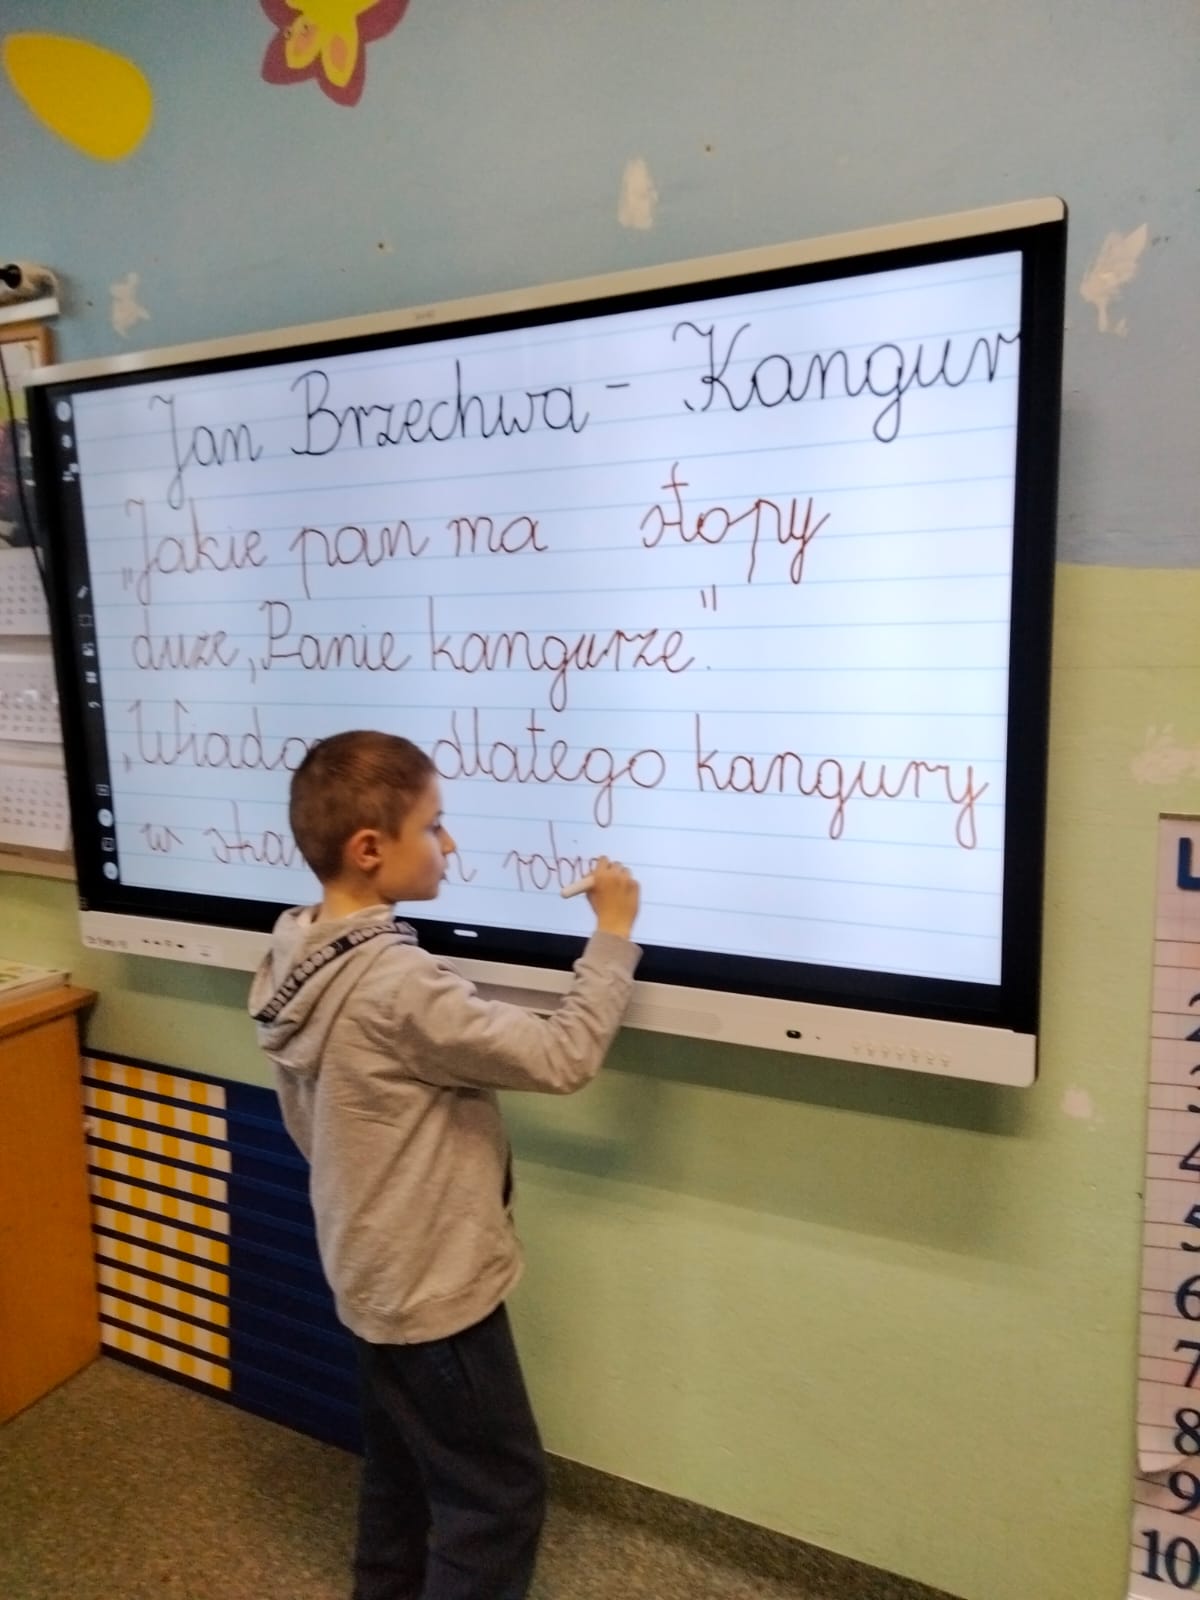 Jan Brzechwa - Kangur
„Jakie pan ma stopy
duże, Panie kangurze."
dlatego kangury
w robią
2
3
4
5
6
7
8
9
10